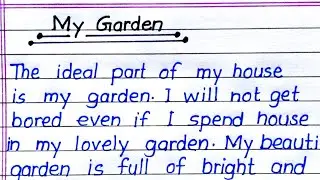 My Garden
The ideal part of my house
is my garden. I will not get
bored even if I spend house
in my lovely garden. My beauti
garden is full of bright and